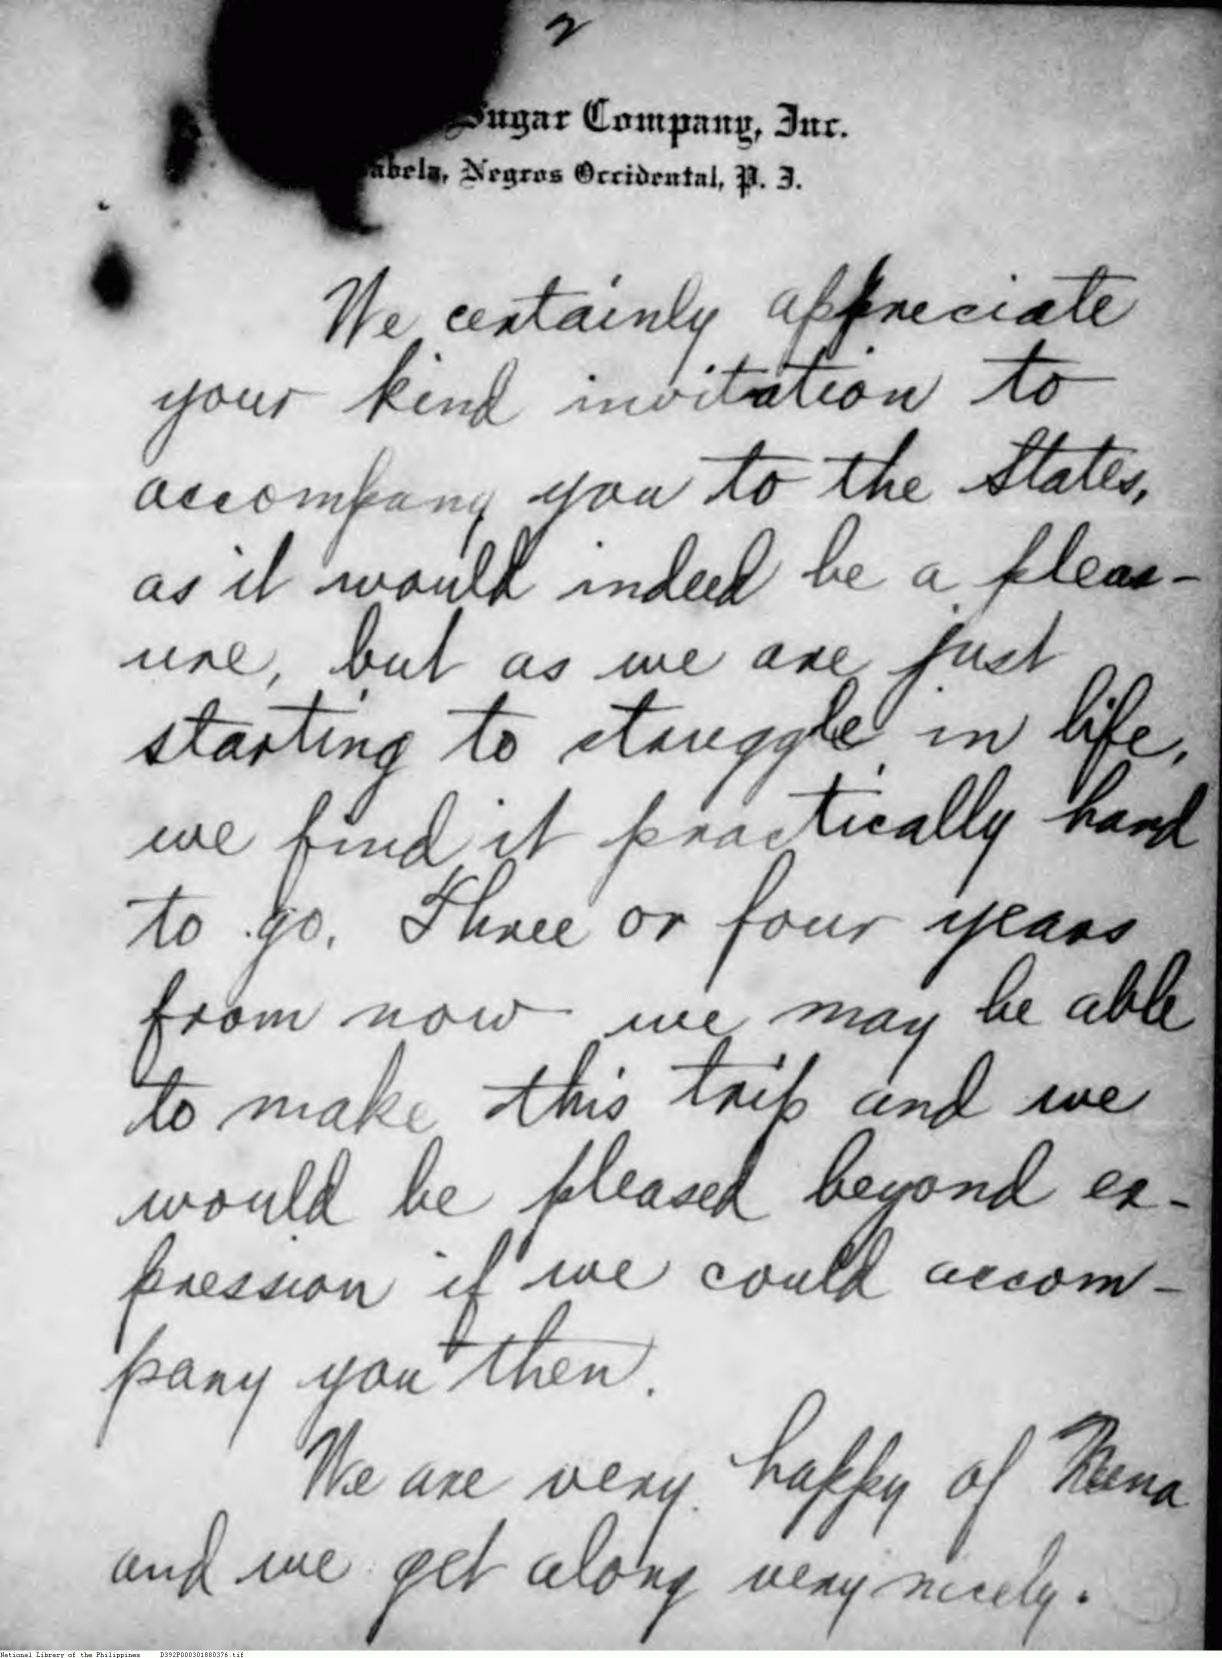 2
Sugar Company, Inc.
abela, Negros Occidental, P. I.
We certainly appreciate
your kind invitation to
accompany you to the States,
as it would indeed be a pleas-
ure, but as we are just
starting to struggle in life,
we find it practically hard
to go. Three or four years
from now we may be able
to make this trip and we
would be pleased beyond ex-
pression if we could accom-
pany you then.
We are very happy of
and we get along very nicely.
National Library of the Philippines D392P000301880376.tif